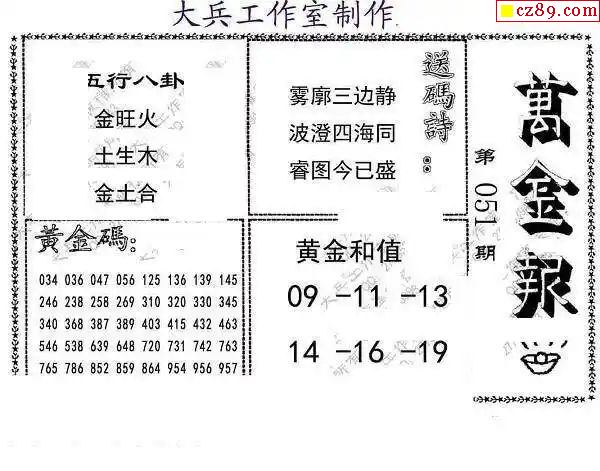 大兵工作室制作
cz89.com
五行八卦
金旺火
土生木
金土合
送碼詩:
雾廓三边静
波澄四海同
睿图今已盛
萬金報
第051期
黄金碼:
034 036 047 056 125 136 139 145
246 238 258 269 310 320 330 345
340 368 387 389 403 415 432 463
546 538 639 648 720 731 742 763
765 786 852 859 864 954 956 957
黄金和值
09 -11 -13
14 -16 -19